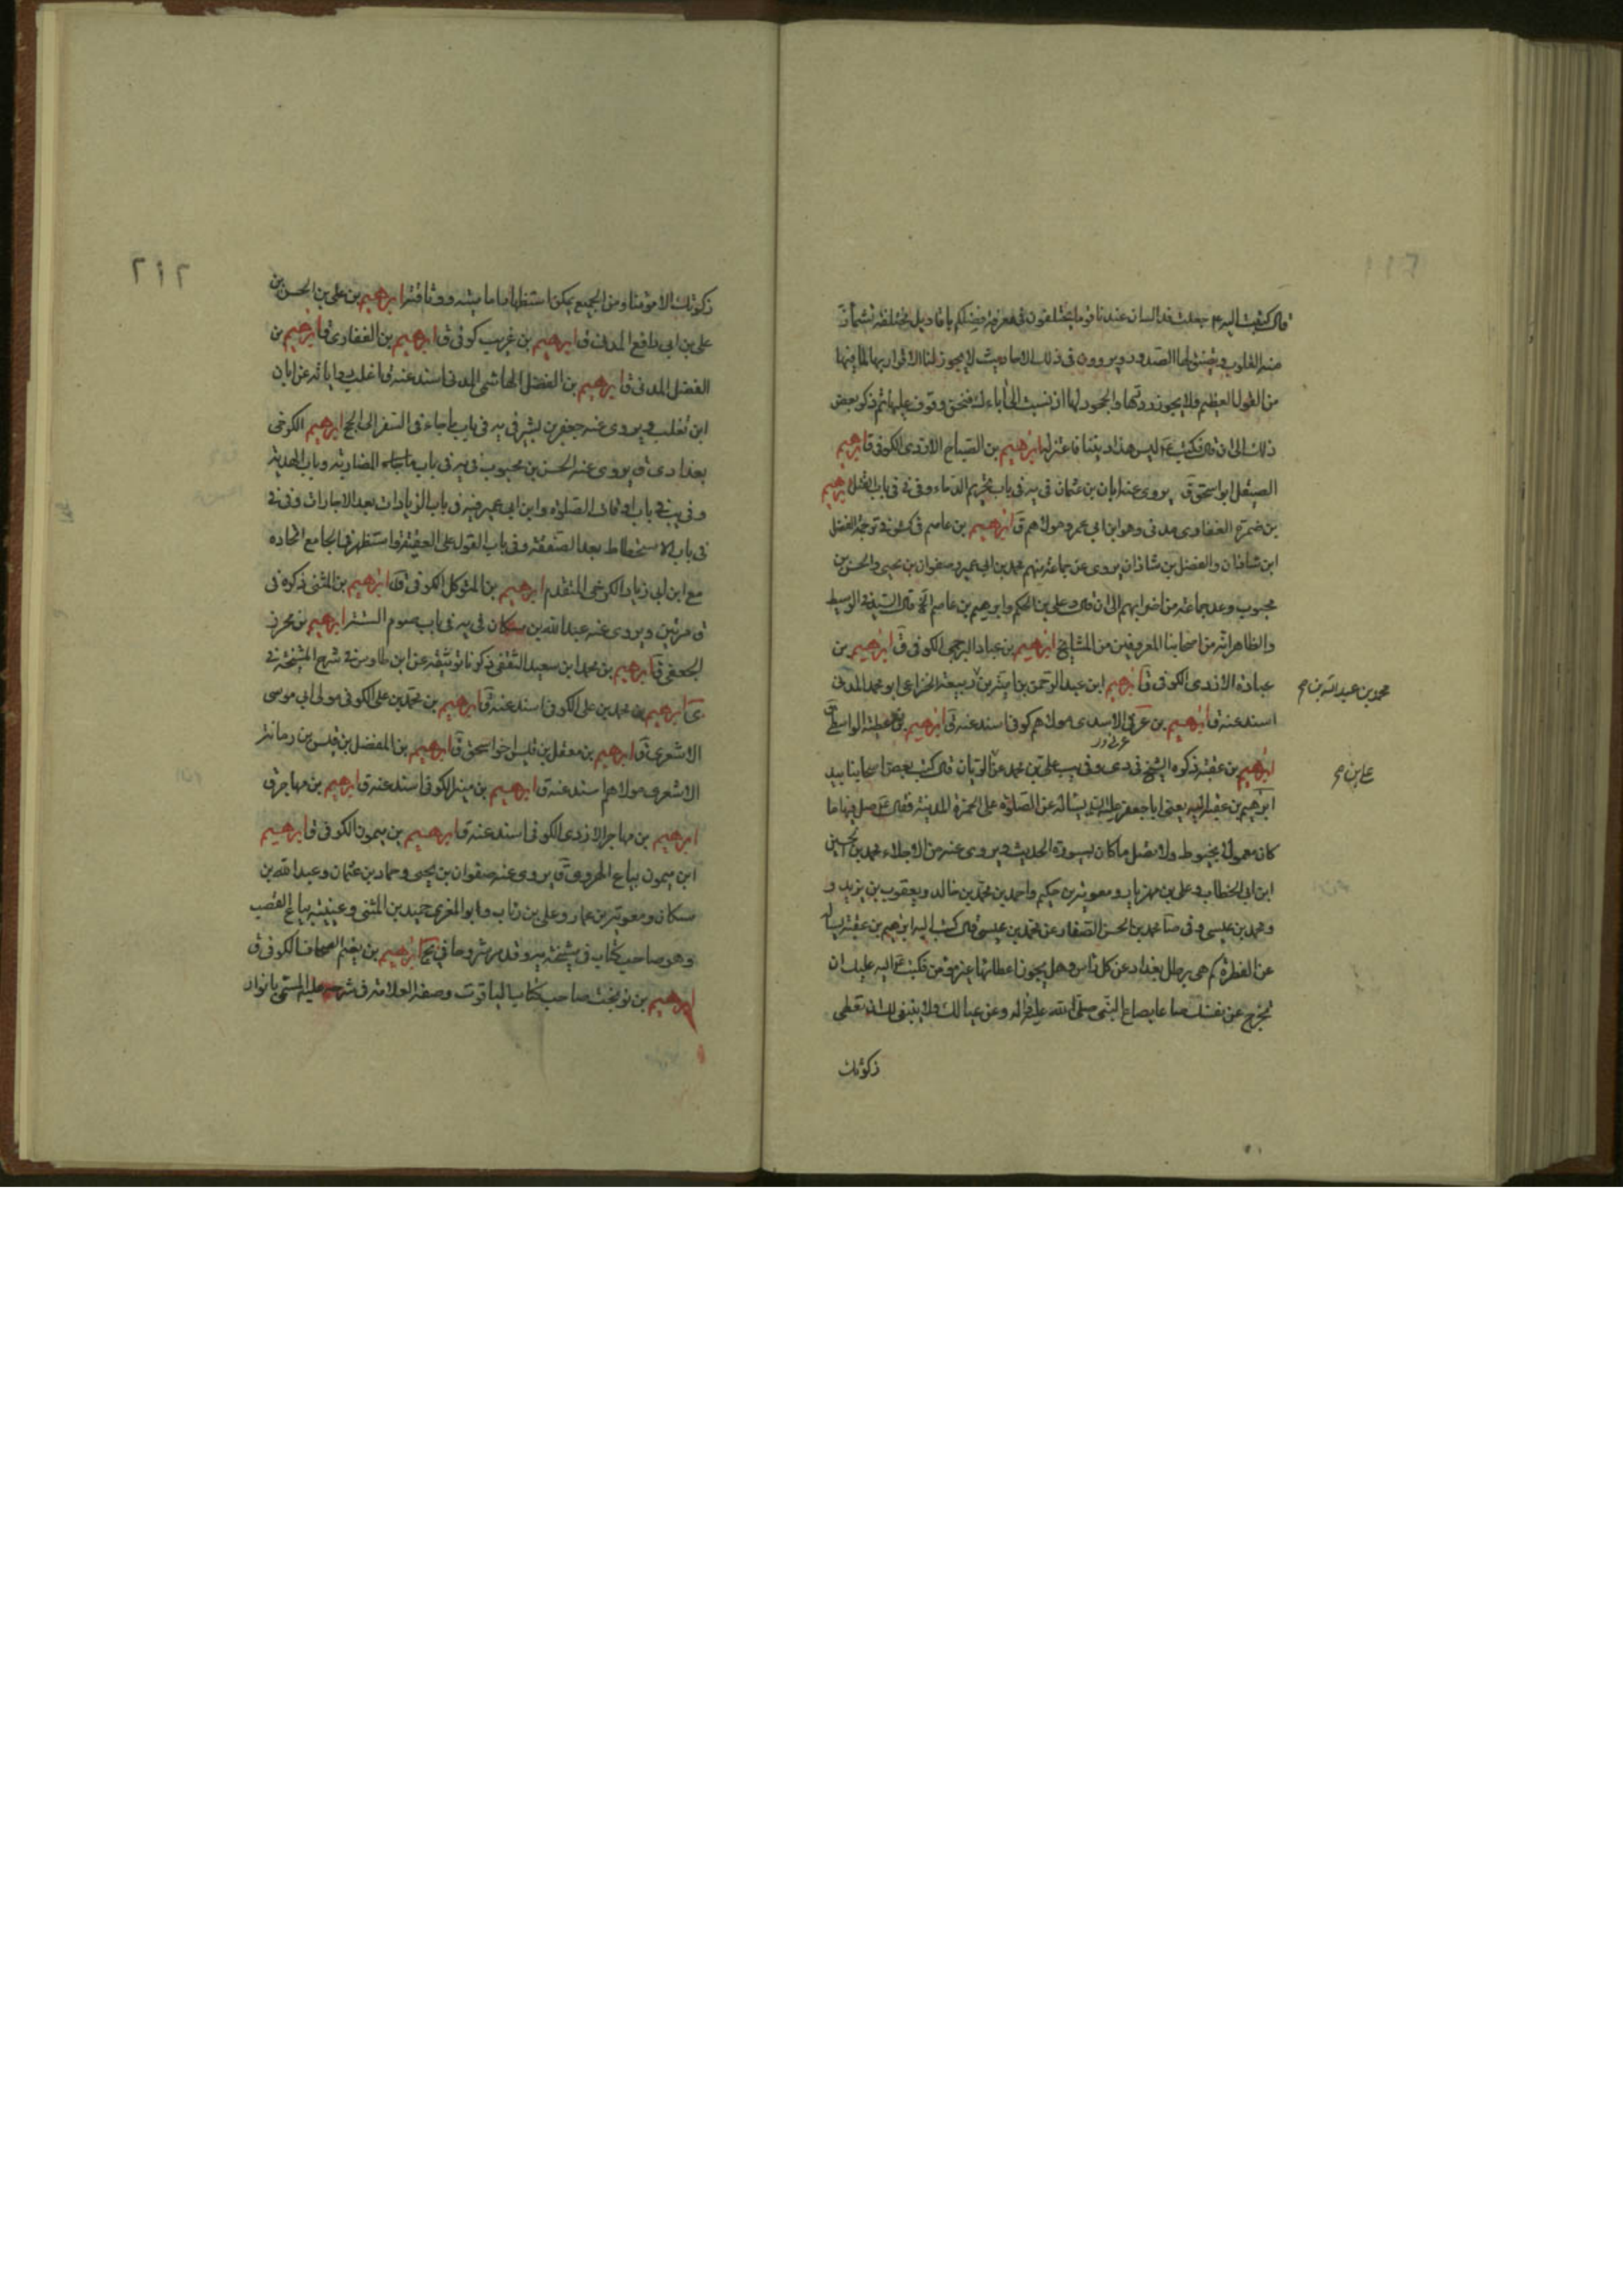 قال كتبت اليه م جعلت فداك ان عندنا قوما يختلفون في معرفة فضلكم باقاويل مختلفة تشمأز
منه القلوب ويضيق لها الصدور ويروون في ذلك الاحاديث لا يجوز لنا الاقرار بها لما فيها
من القول العظيم فلا يجوز ردها والجحود لها اذ نسبت الى اباءك فنحن وقوف عليها ثم ذكر بعض
ذلك الى ان قال فكتب ليس هذا ديننا فاعتزله ابرهيم بن الصباح الازدي الكوفي ق ابرهيم
الصيقل ابو اسحق ق يروي عنه ابان بن عثمان في يه في باب تحريم الدماء وفي في في باب القتل ابرهيم
بن ضمرة الغفاري مدني وهو ابن ابي عمرو مولاهم ق ابرهيم بن عاصم في كش في ترجمة الفضل
ابن شاذان والفضل بن شاذان يروي عن جماعة منهم محمد بن ابي عمير وصفوان بن يحيى والحسن بن
محبوب وعد جماعة من اضرابهم الى ان قال وعلي بن الحكم وابرهيم بن عاصم الخ قال السيد في الوسيط
والظاهر انه من اصحابنا المعروفين من المشايخ ابرهيم بن عباد البرجمي الكوفي ق ابرهيم بن
عبادة الازدي الكوفي ق ابرهيم ابن عبد الرحمن بن امية بن ربيعة الخزاعي ابو محمد المدني
محمد بن عبيد الله بن م
اسند عنه ق ابرهيم بن عرفي الاسدي مولاهم كوفي اسند عنه ق ابرهيم بن عطية الواسطي ق
ابرهيم بن عقبة ذكره الشيخ في دي وفي يب علي بن محمد عن الريان قال كتب بعض اصحابنا بيد
ابرهيم بن عقبة اليه يعني ابا جعفر عليه السلام يسأله عن الصلوة على الخمرة المدينة فقال صل فيها ما
كان معمولا بخيوط ولا تصل ما كان بسيورة الحديث ويروي عنه من الاجلاء محمد بن الحسين
ابن ابي الخطاب وعلي بن مهزيار ومعوية بن حكيم واحمد بن محمد بن خالد ويعقوب بن يزيد و
ومحمد بن عيسى وفي صا محمد بن الحسن الصفار عن محمد بن عيسى قال كتب اليه ابرهيم بن عقبة يسأله
عن الفطرة كم هي برطل بغداد عن كل راس وهل يجوز اعطائها غير مؤمن فكتب اليه عليك ان
تخرج عن نفسك صاعا بصاع النبي صلى الله عليه واله وعن عيالك ولا ينبغي لك ان تعطي
زكوتك
٢١٢
زكوتك الا مؤمنا ومن الجميع يمكن استظهار اماميته ووثاقته ابرهيم بن علي بن الحسن بن
علي بن ابي رافع المدني ق ابرهيم بن غريب كوفي ق ابرهيم بن الغفاري ق ابرهيم بن
الفضل المدني ق ابرهيم بن الفضل الهاشمي المدني اسند عنه ق اغلب رواياته عن ابان
ابن تغلب ويروي عنه جعفر بن بشير في يه في باب ما جاء في السفر الى الحج ابرهيم الكرخي
بغدادي ق يروي عنه الحسن بن محبوب في يه في باب المضاربة وباب الهدية
وفي يب في باب اوقات الصلوة وابن ابي عمير فيه في باب الزيادات بعد الاجارات وفي في
في باب الاستحطاط بعد الصفقة وفي باب القول على العقيقة واستظهر في الجامع اتحاده
مع ابن ابي زياد الكرخي المتقدم ابرهيم بن المتوكل الكوفي ق ابرهيم بن المثنى ذكره في
ق مرتين ويروي عنه عبد الله بن مسكان في يه في باب صوم السنة ابرهيم بن محرز
الجعفي ق ابرهيم بن محمد ابن سعيد الثقفي ذكرنا توثيقه عن ابن طاوس في شرح المشيخة في
ابرهيم بن محمد بن علي الكوفي اسند عنه ق ابرهيم بن محمد بن علي الكوفي مولى ابي موسى
الاشعري ق ابرهيم بن معقل بن قيس اخو اسحق ق ابرهيم بن المفضل بن قيس بن رمانة
الاشعري مولاهم اسند عنه ق ابرهيم بن منير الكوفي اسند عنه ق ابرهيم بن مهاجر ق
ابرهيم بن مهاجر الازدي الكوفي اسند عنه ق ابرهيم بن ميمون الكوفي ق ابرهيم
ابن ميمون بياع الهروي ق يروي عنه صفوان بن يحيى وحماد بن عثمان وعبد الله بن
مسكان ومعوية بن عمار وعلي بن رئاب وابو المغرى حميد بن المثنى وعيينة بياع القصب
وهو صاحب كتاب في مشيخة يه وقد مر مشروحا في ابرهيم بن نعيم الصحاف الكوفي ق
ابرهيم بن نوبخت صاحب كتاب الياقوت وصفه العلامة في شرحه عليه المسمى بانوار